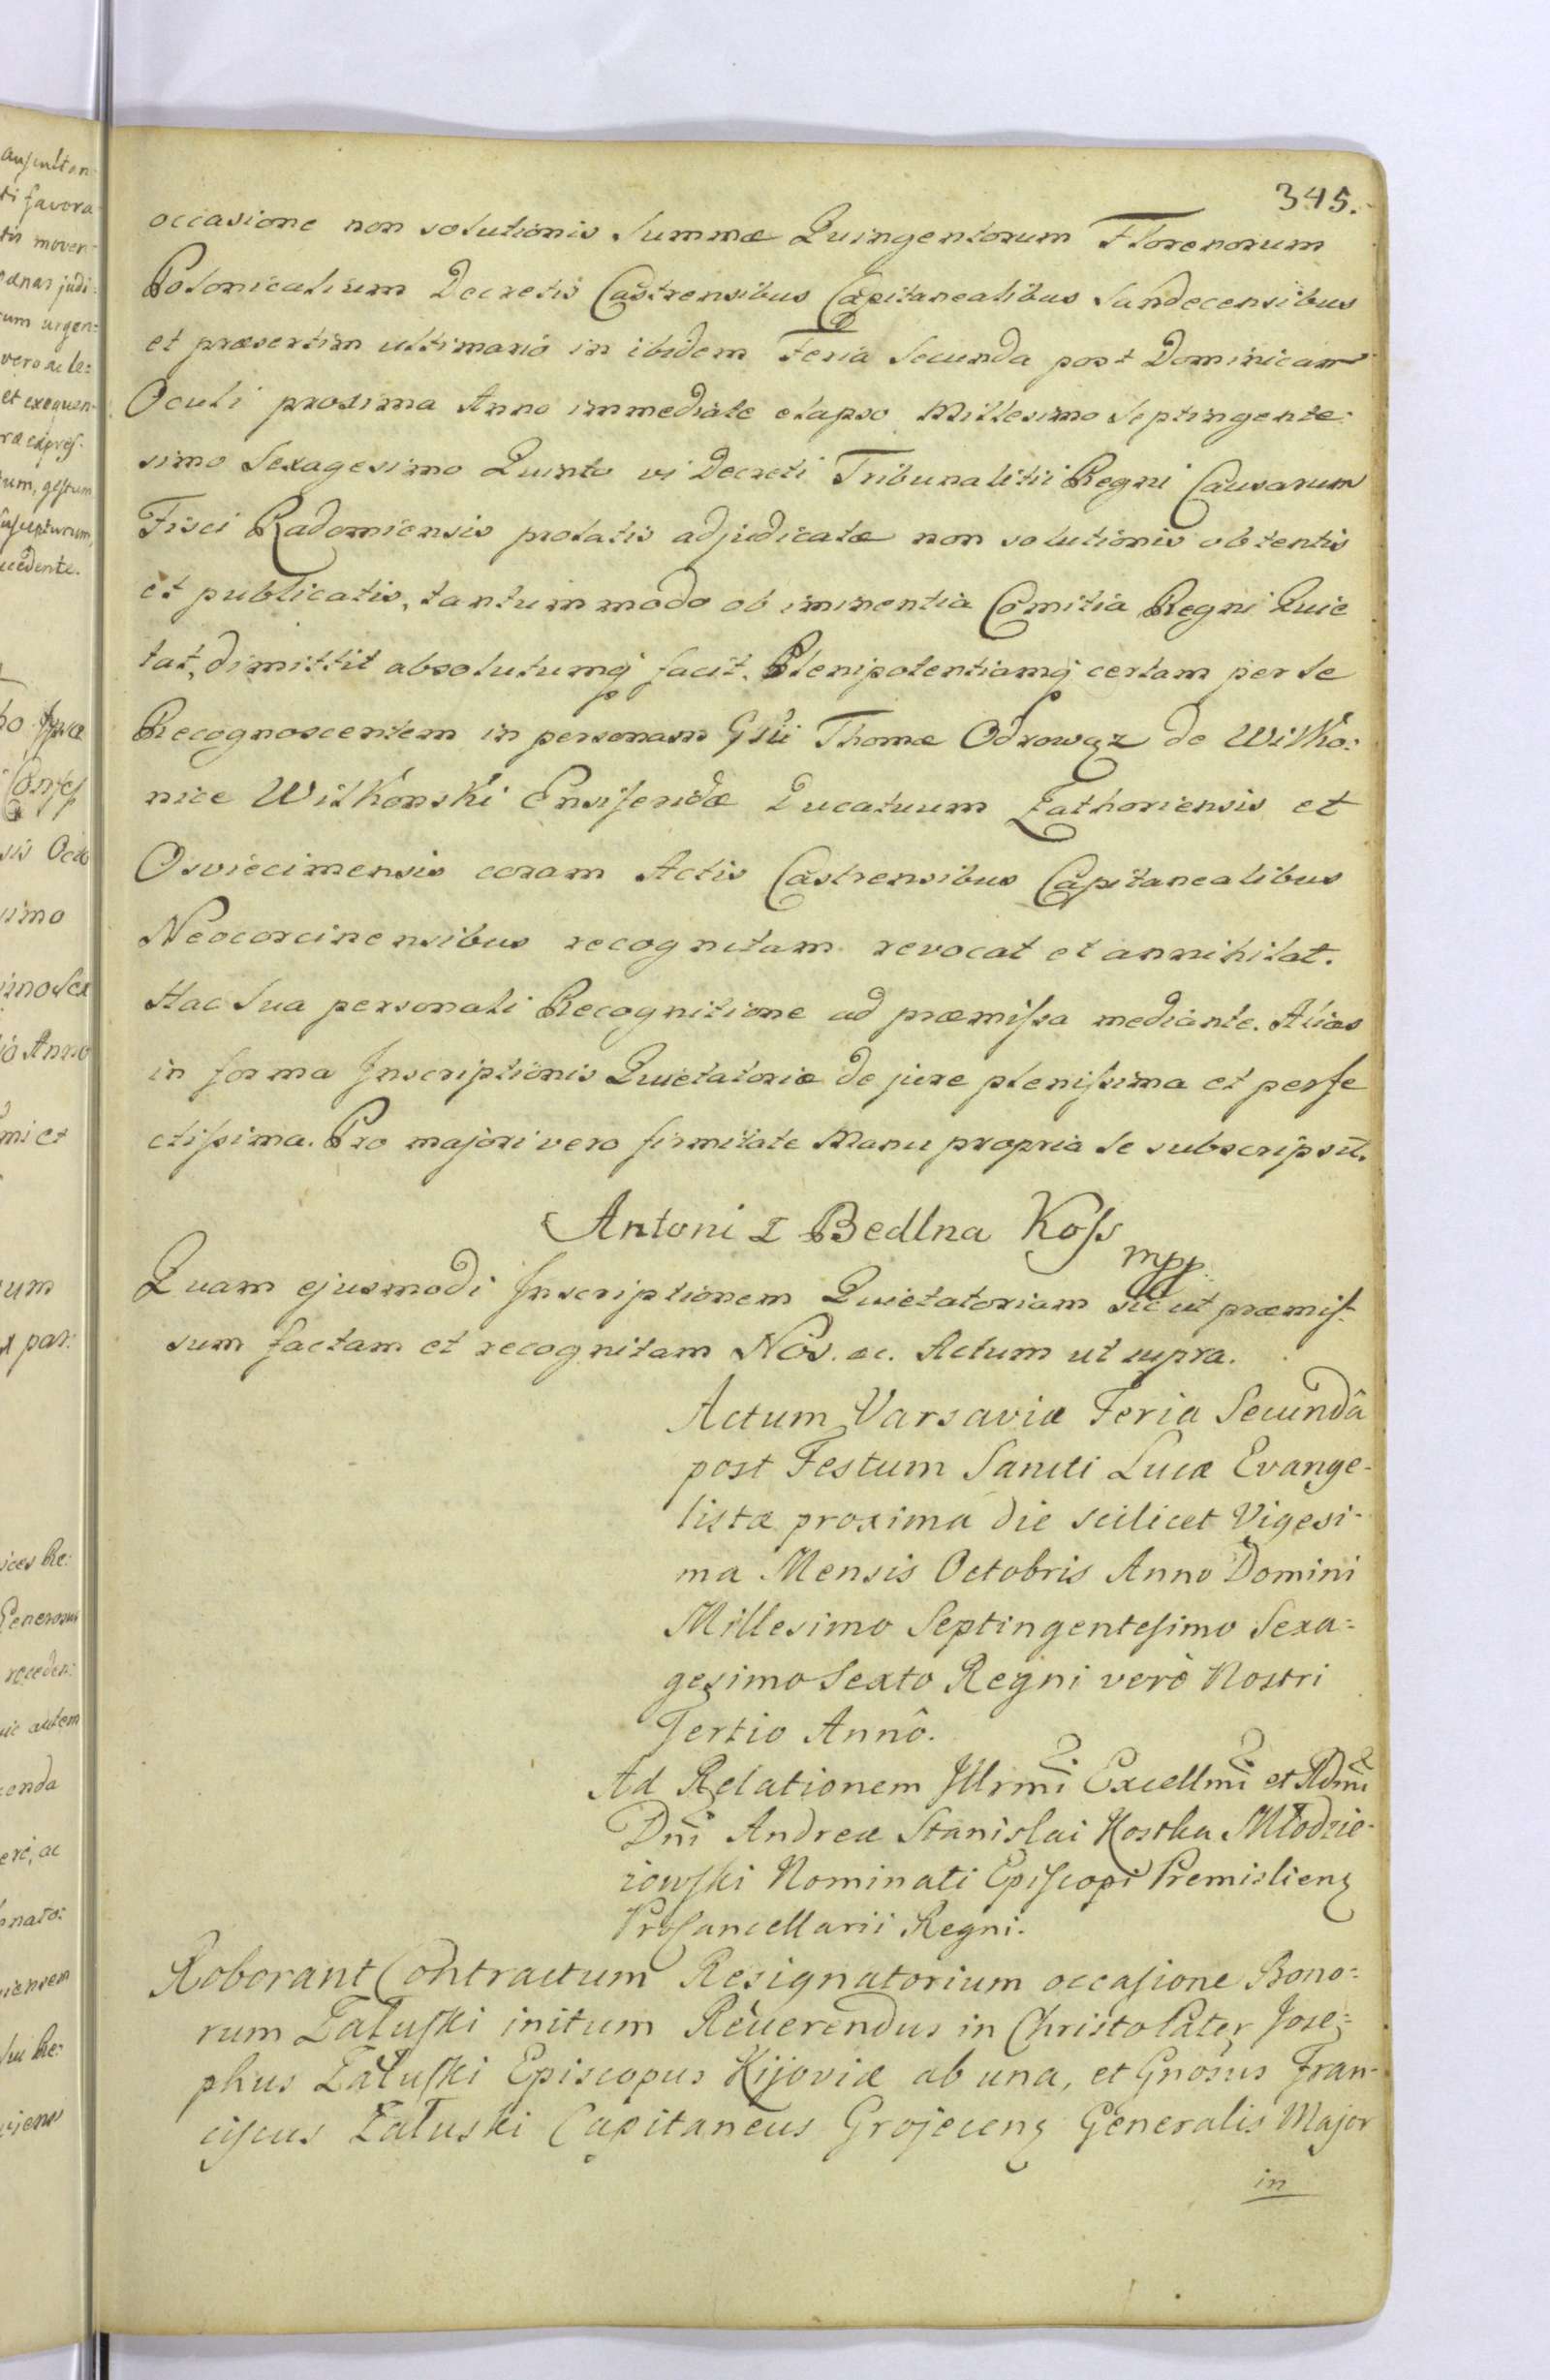 345.
occasione non solutionis Summæ Quingentorum Florenorum
Polonicalium Decretis Castrensibus Capitanealibus Sandecensibus
et præsertim ultimario in ibidem Feria Secunda post Dominicam
Oculi proxima Anno immediate elapso Millesimo Septingente:
simo Sexagesimo Quinto vi Decreti Tribunalitii Regni Causarum
Fisci Radomiensis prolatis adjudicatæ non solutionis obtentis
et publicatis, tantummodo ob iminentia Comitia Regni Quie
tat, dimittit absolutumq facit. Plenipotentiamq certam per Se
Recognoscentem in personam Gsii Thomæ Odrowąz de Witko:
nice Witkonski Ensiferidæ Ducatuum Zathoriensis et
Osviecimensis coram Actis Castrensibus Capitanealibus
Neocorcinensibus recognitam revocat et annihilat.
Hac Sua personali Recognitione ad præmiſsa mediante. Alias
in forma Inscriptionis Quietatoriæ de jure pleniſsima et perfe
ctiſsima. Pro majori vero firmitate Manu propria Se subscripsit.
Antoni z Bedlna Koſs
mpp.
Quam ejusmodi Inscriptionem Quietatoriam sicut præmiſ-
sum factam et recognitam Nos. ac. Actum ut supra.
Actum Varsaviæ Feria Secundâ
post Festum Sancti Lucæ Evange-
listæ proxima die scilicet Vigesi-
ma Mensis Octobris Anno Domini
Millesimo Septingenteſimo Sexa=
gesimo Sexto Regni verò Nostri
Tertio Annô.
Ad Relationem Illrmi Excellmi et Rdmi
Dni Andreæ Stanislai Kostka Młodzie-
iowſki Nominati Epiſcopi Premisliens
ProCancellarii Regni.
Roborant Contractum Resignatorium occaſione Bono=
rum Załuſki initum Reverendus in Christo Pater Jose=
phus Załuſki Episcopus Kijoviæ ab una, et Gnosus Fran-
ciſcus Załuski Capitaneus Grojecens Generalis Major
in